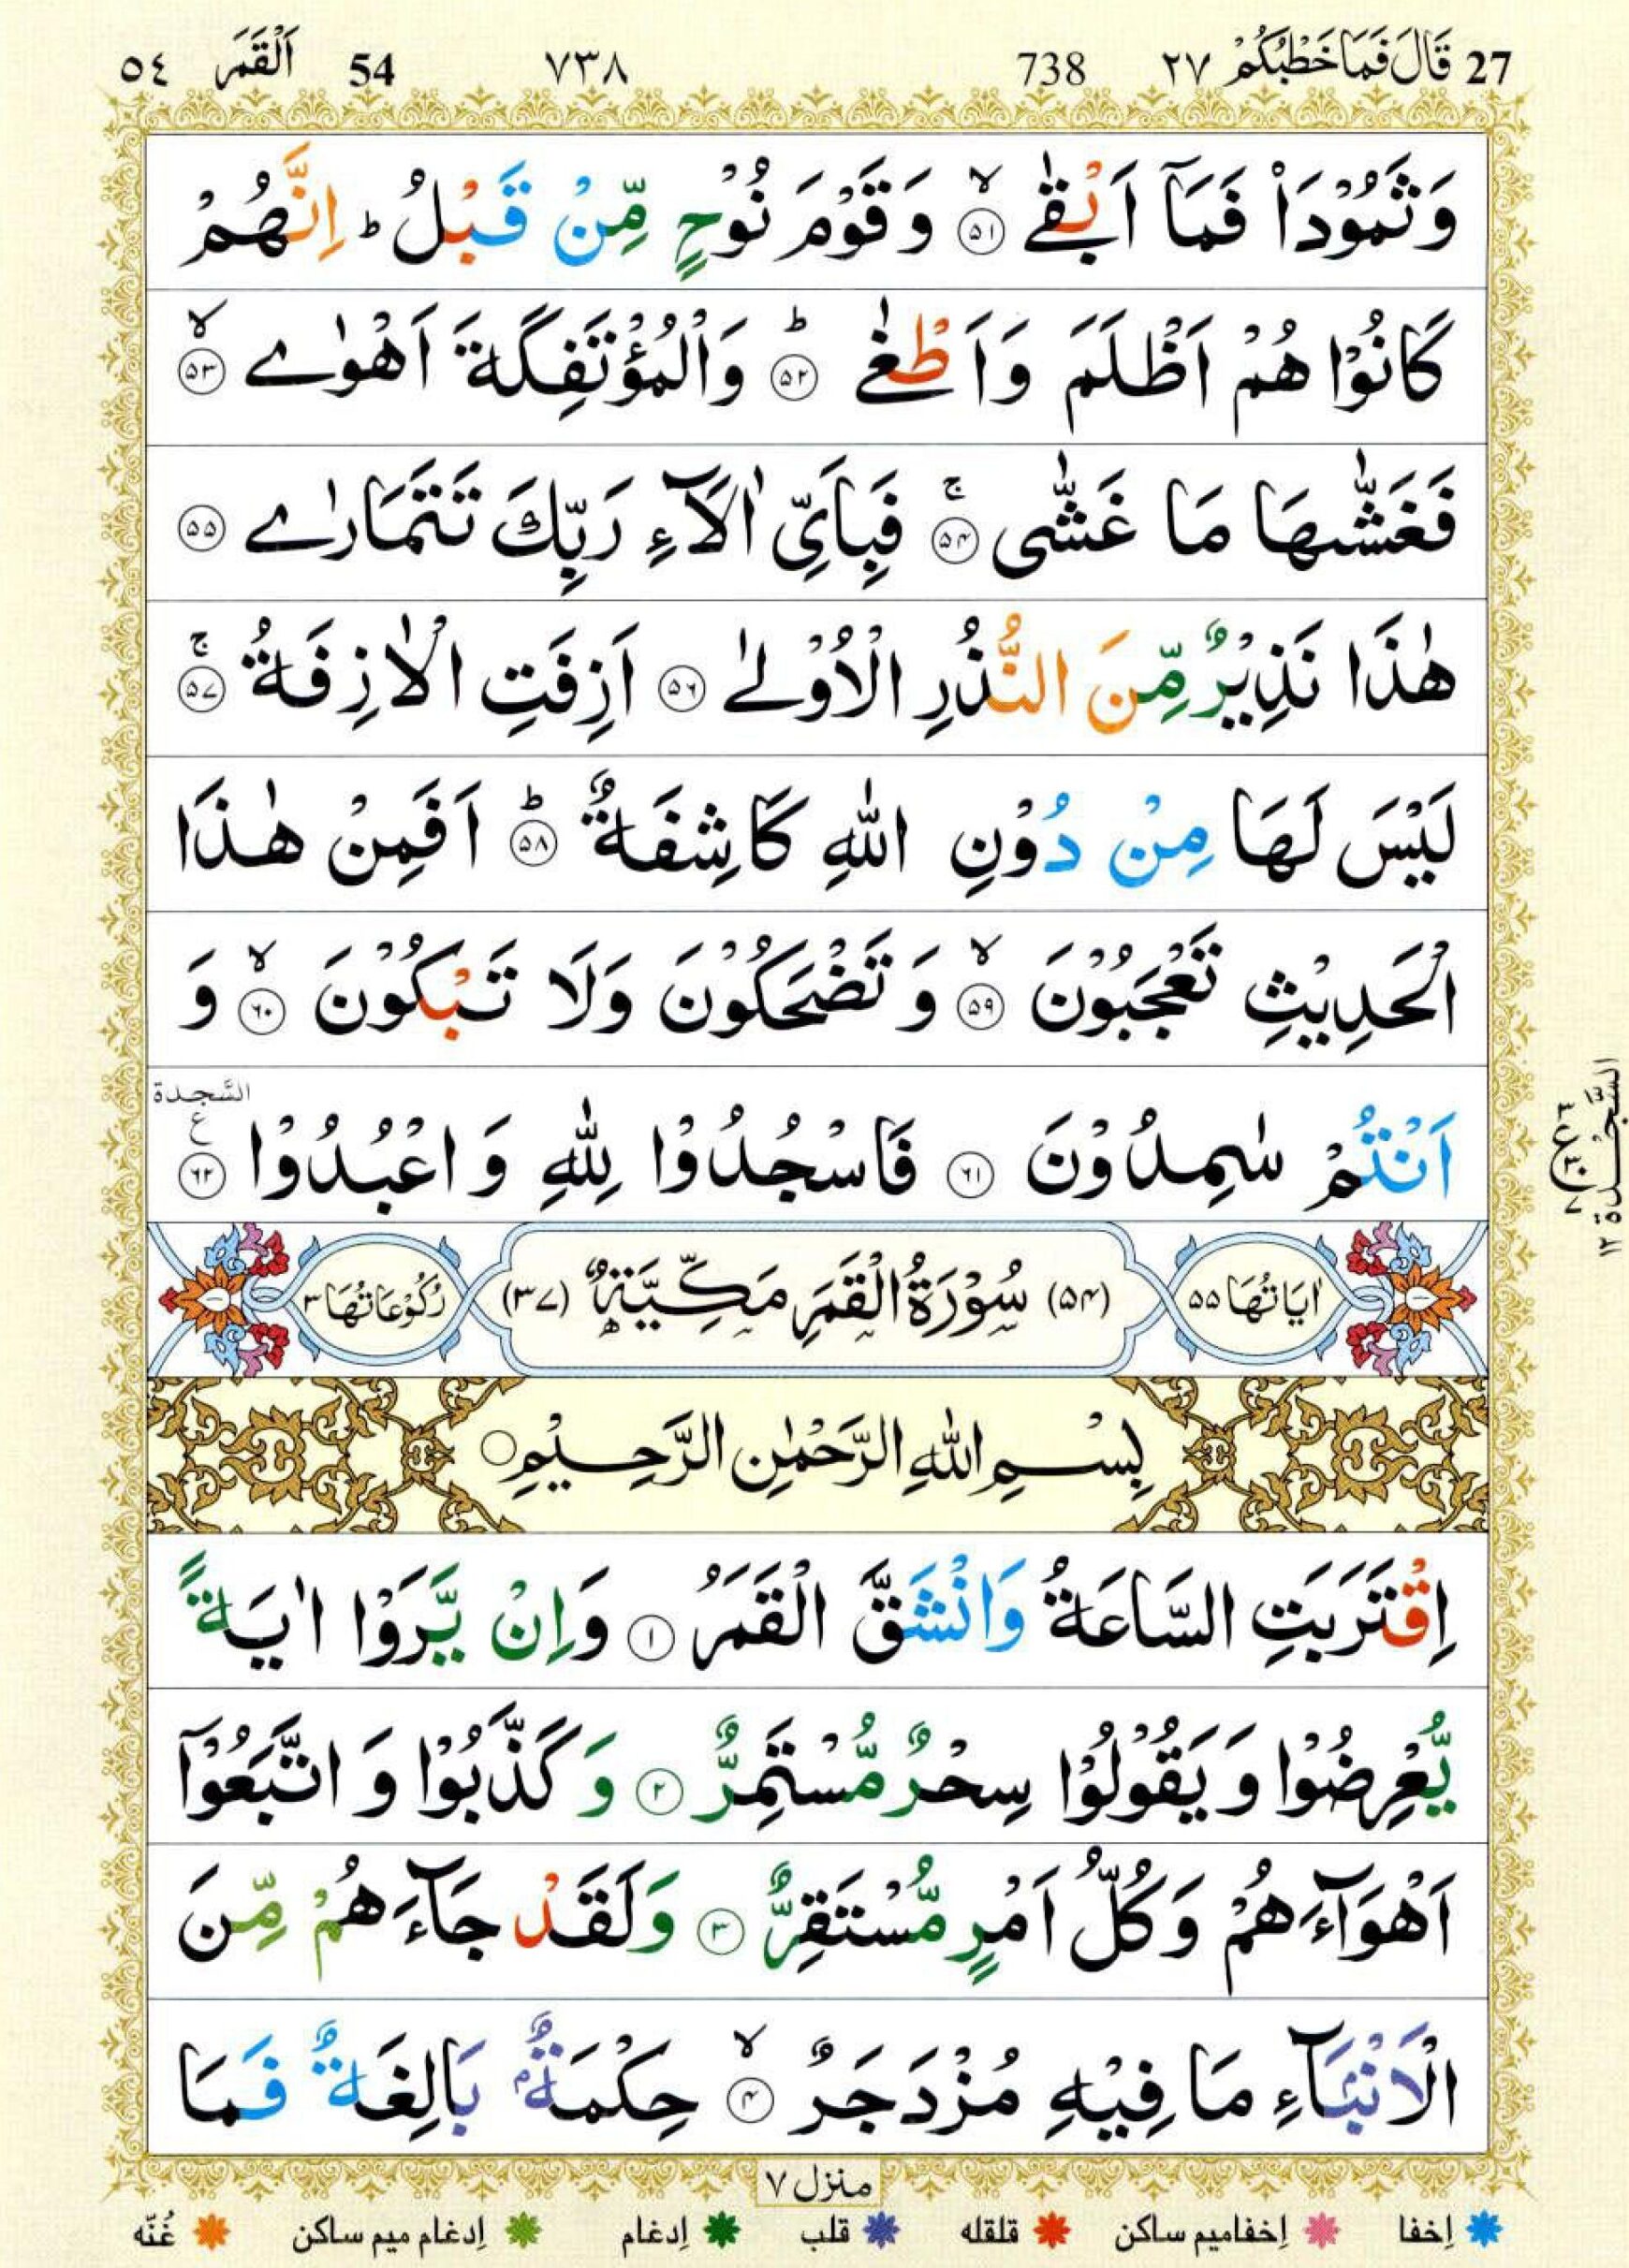 27 قَالَ فَمَا خَطْبُكُمْ ٢٧ 738 ٧٣٨ 54 اَلْقَمَر ٥٤
وَثَمُوْدَاۡ فَمَاۤ اَبْقٰى ۙ‏﴿۵۱﴾ وَقَوْمَ نُوْحٍ مِّنْ قَبْلُ ؕ اِنَّهُمْ
كَانُوْا هُمْ اَظْلَمَ وَاَطْغٰى ؕ‏﴿۵۲﴾ وَالْمُؤْتَفِكَةَ اَهْوٰى ۙ‏﴿۵۳﴾
فَغَشّٰىهَا مَا غَشّٰى ۚ‏﴿۵۴﴾ فَبِاَىِّ اٰلَآءِ رَبِّكَ تَتَمَارٰى ﴿۵۵﴾
هٰذَا نَذِيْرٌ مِّنَ النُّذُرِ الْاُوْلٰى ﴿۵۶﴾ اَزِفَتِ الْاٰزِفَةُ ۚ‏﴿۵۷﴾
لَيْسَ لَهَا مِنْ دُوْنِ اللّٰهِ كَاشِفَةٌ ؕ‏﴿۵۸﴾ اَفَمِنْ هٰذَا
الْحَدِيْثِ تَعْجَبُوْنَ ۙ‏﴿۵۹﴾ وَ تَضْحَكُوْنَ وَلَا تَبْكُوْنَ ۙ‏﴿۶۰﴾ وَ
اَنْتُمْ سٰمِدُوْنَ ﴿۶۱﴾ فَاسْجُدُوْا لِلّٰهِ وَ اعْبُدُوْا ﴿۶۲﴾ السَّجدة ع
السَّجْدَة ١٢ ع ٣ ٣٠ ٧
اٰيَاتُهَا ۵۵ (۵۴) سُوْرَةُ الْقَمَرِ مَكِّيَّةٌ (۳۷) رُكُوْعَاتُهَا ۳
بِسْمِ اللّٰهِ الرَّحْمٰنِ الرَّحِيْمِ
اِقْتَرَبَتِ السَّاعَةُ وَانْشَقَّ الْقَمَرُ ﴿۱﴾ وَاِنْ يَّرَوْا اٰيَةً
يُّعْرِضُوْا وَ يَقُوْلُوْا سِحْرٌ مُّسْتَمِرٌّ ﴿۲﴾ وَ كَذَّبُوْا وَ اتَّبَعُوْۤا
اَهْوَآءَهُمْ وَكُلُّ اَمْرٍ مُّسْتَقِرٌّ ﴿۳﴾ وَلَقَدْ جَآءَهُمْ مِّنَ
الْاَنْۢبَآءِ مَا فِيْهِ مُزْدَجَرٌ ۙ‏﴿۴﴾ حِكْمَةٌۢ بَالِغَةٌ فَمَا
منزل ۷
اِخفا اِخفامیم ساکن قلقله قلب اِدغام اِدغام میم ساکن غُنّه